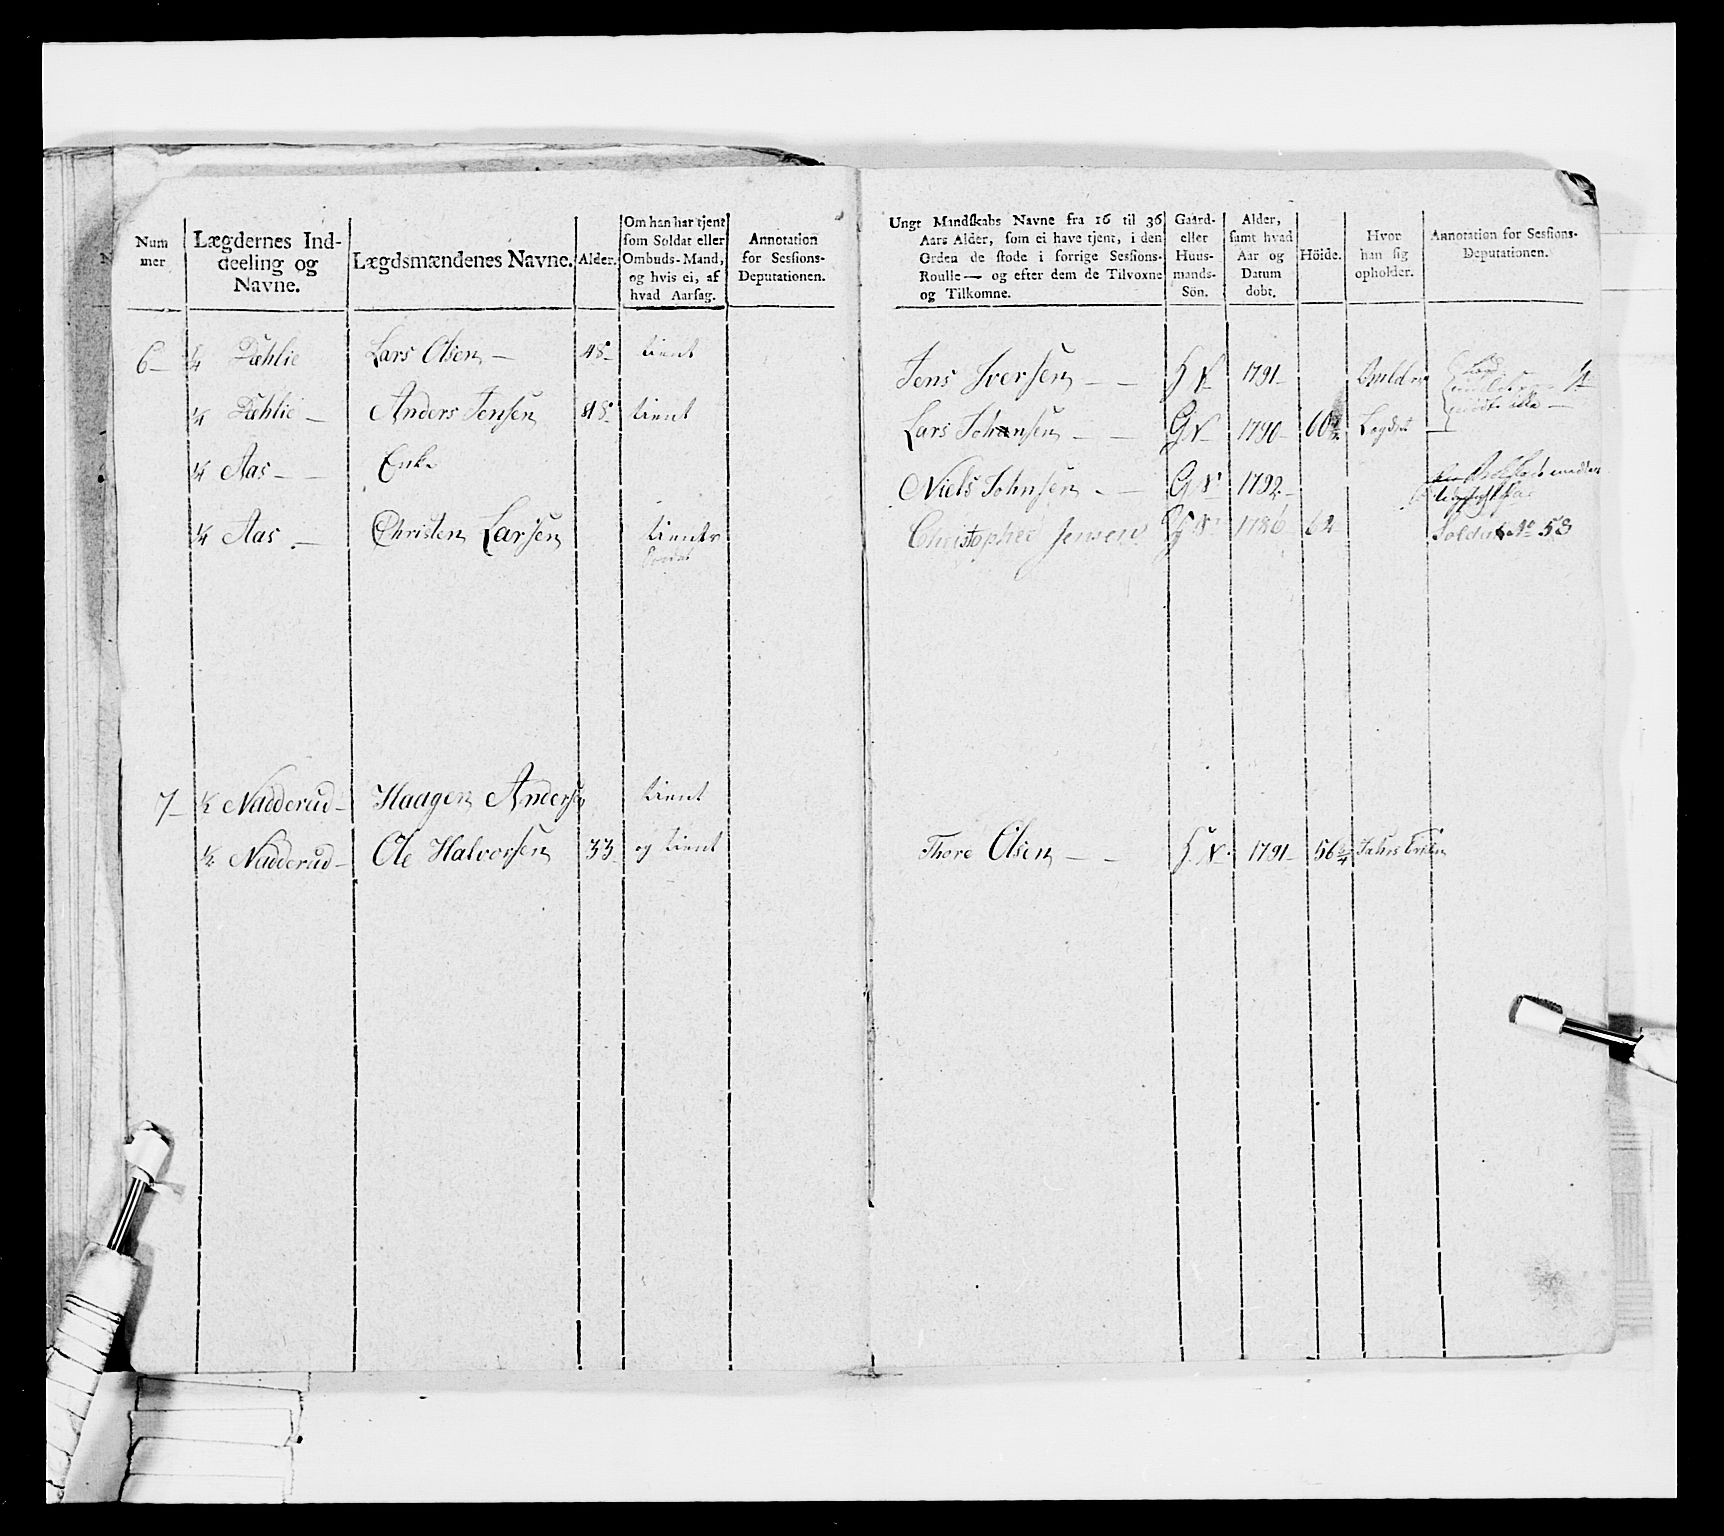 Num
mer
Lægdernes Ind-
deeling og
Navne.
Lægdsmændenes Navne.
Alder.
Om han har tjent
som Soldat eller
Ombuds-Mand,
og hvis ei, af
hvad Aarsag.
Annotation
for Sessions-
Deputationen.
Ungt Mandskabs Navne fra 16 til 36
Aars Alder, som ei have tjent, i den
Orden de stode i forrige Sessions-
Roulle — og efter dem de Tilvoxne
og Tilkomne.
Gaard-
eller
Huus-
mands-
Sön.
Alder,
samt hvad
Aar og
Datum
dobt.
Höide.
Hvor
han sig
opholder.
Annotation for Sessions-
Deputationen.
6 – ¼ Dæhlie Lars Olsen – 48 – tient
¼ Dæhlie – Anders Jensen 48 – tient
¼ Aas – Enke
¼ Aas – Christen Larsen tient
Jens Iversen – – H S 1791
Lars Johansen – – G S 1790 60
Niels Johnsen – – G S 1792 –
Christopher Jensen G S 1786 62 Soldat No 58
7 – ½ Nadderud – Haagen Andersen tient
½ Nadderud – Ole Halvorsen 33 og tient
Thore Olsen – – H. S. 1791 – 56